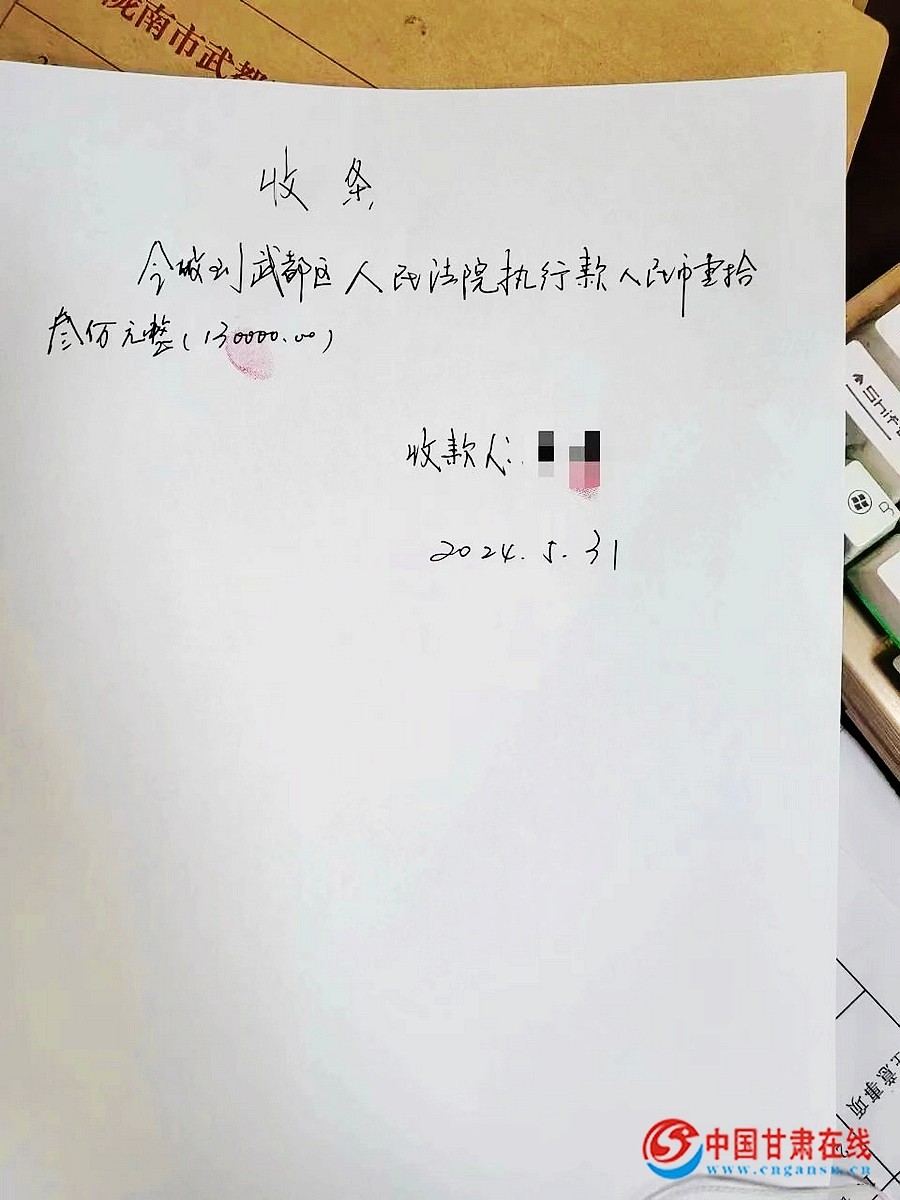 陇南市武都
收条
今收到武都区人民法院执行款人民币壹拾
叁万元整(130000.00)
收款人:
2024.5.31
Shift
注意事项
中国甘肃在线
www.cngansu.cn